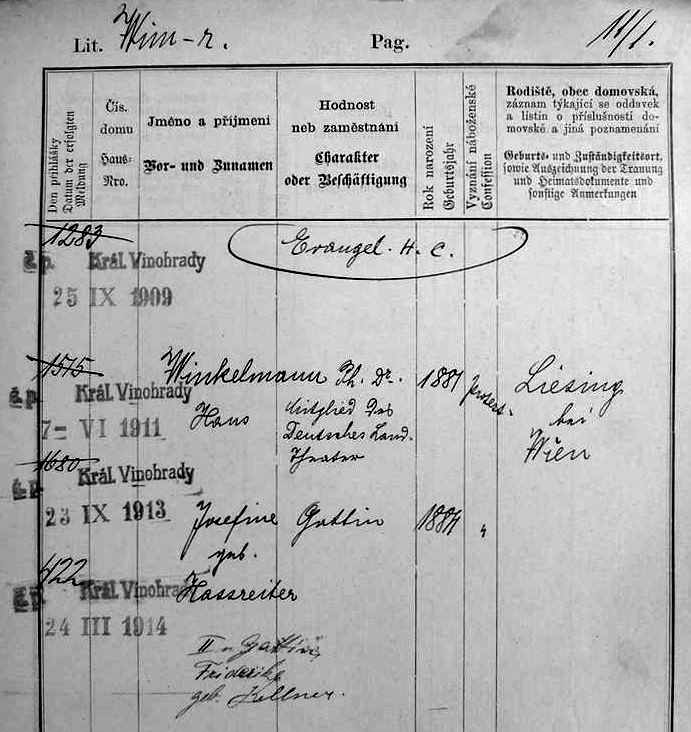 Lit. Wim-r. Pag. 11/1.
Den přihlášky
Datum der erfolgten
Meldung
Čís.
domu
Haus-
Nro.
Jméno a příjmení
Vor- und Zunamen
Hodnost
neb zaměstnání
Charakter
oder Beschäftigung
Rok narození
Geburtsjahr
Vyznání náboženské
Confession
Rodiště, obec domovská,
záznam týkající se oddavek
a listin o příslušnosti do-
movské a jiná poznamenání
Geburts- und Zuständigkeitsort,
sowie Auszeichnung der Trauung
und Heimatsdokumente und
sonstige Anmerkungen
1283 Evangel. H. C.
č.p. Král. Vinohrady
25 IX 1909
1515 Winkelmann Ph. Dr. 1881 protest. Liesing
č.p. Král. Vinohrady Hans Mitglied Das bei
7- VI 1911 Deutsches Land. Wien
1680 Theater
č.p. Král. Vinohrady
23 IX 1913 Josefine Gattin 1884 "
geb.
422 Hassreiter
č.p. Král. Vinohrady
24 III 1914
II. Gattin
Friderike
geb. Kellner.